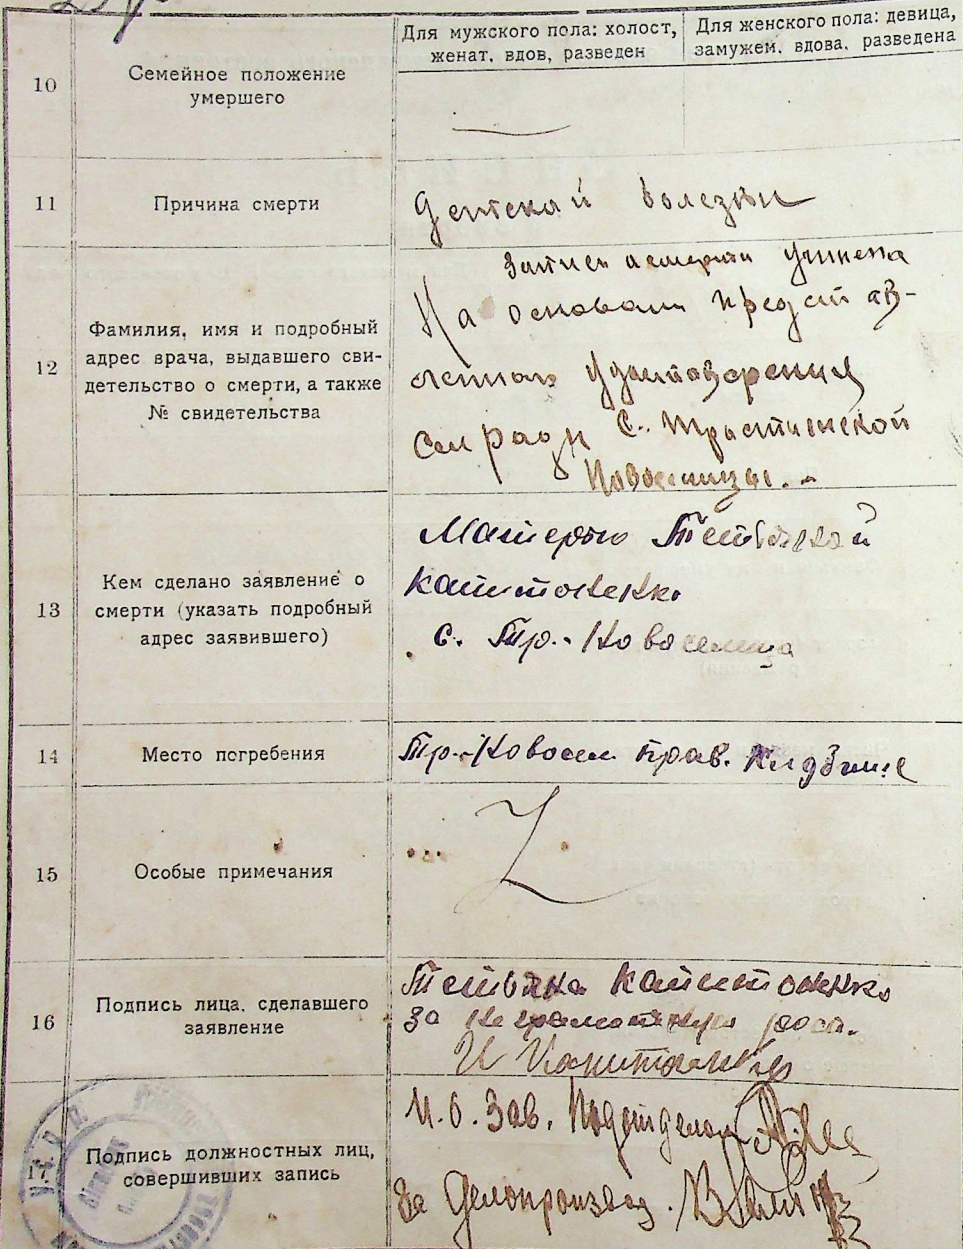 Для мужского пола: холост,
женат, вдов, разведен
Для женского пола: девица,
замужем, вдова, разведена
10
Семейное положение
умершего
11
Причина смерти
Детской болезни
12
Фамилия, имя и подробный
адрес врача, выдавшего сви-
детельство о смерти, а также
№ свидетельства
Запись о смерти
На основании представ-
удостоверения
Сельрады С. Тростянской
Новоселицы.
13
Кем сделано заявление о
смерти (указать подробный
адрес заявившего)
Матерью
Капитоненко
с. Тр.-Новоселица
14
Место погребения
Тр.-Новосел прав. кладбище
15
Особые примечания
16
Подпись лица, сделавшего
заявление
Капитоненко
за неграмотную росп.
И Капитоненко
17
Подпись должностных лиц,
совершивших запись
И. О. Зав. Подотделом
За Делопроизвод.